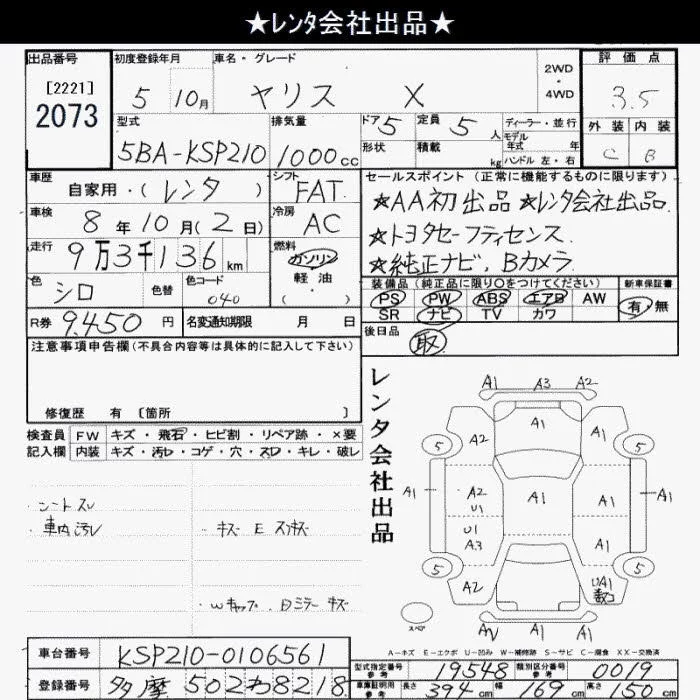 ★レンタ会社出品★
出品番号 初度登録年月 車名・グレード 2WD・4WD 評価点
[2221]
2073
5 10月 ヤリス X 3.5
型式 排気量 ドア 5 定員 5人 ディーラー・並行 外装 内装
5BA-KSP210 1000cc 形状 積載 kg モデル年式 年 C B
ハンドル 左・右
車歴 自家用・(レンタ) シフト FAT
セールスポイント(正常に機能するものに限ります)
車検 8年10月(2日) 冷房 AC
★AA初出品 ★レンタ会社出品
★トヨタセーフティセンス
★純正ナビ、Bカメラ
走行 9万3千136km 燃料 ガソリン 軽油 ( )
色 シロ 色替 色コード 040
装備品(純正品に限り○をつけてください) 新車保証書
PS PW ABS エアB AW 有・無
SR ナビ TV カワ
R券 9,450円 名変通知期限 月 日
後日品 取
注意事項申告欄(不具合内容等は具体的に記入して下さい)
修復歴 有 〔箇所 〕
検査員記入欄 FW キズ・飛石・ヒビ割・リペア跡・×要
内装 キズ・汚レ・コゲ・穴・スレ・キレ・破レ
・シートスレ
・車内汚レ
・キズ E スリキズ
・Wキャップ、日ミラーキズ
レンタ会社出品
A1 A3 A2
A2 A1
5 5
A1 A2 U1 A1 A1 A1
U1 A3 A1
5 5
A2 UA1
スペア
AV A1 A1
A-キズ E-エクボ U-凹み W-補修跡 S-サビ C-腐食 XX-交換済
車台番号 KSP210-0106561
型式指定番号参考 19548 類別区分番号参考 0019
登録番号 多摩502わ8218
車庫証明用参考 長さ 394cm 幅 169cm 高さ 150cm